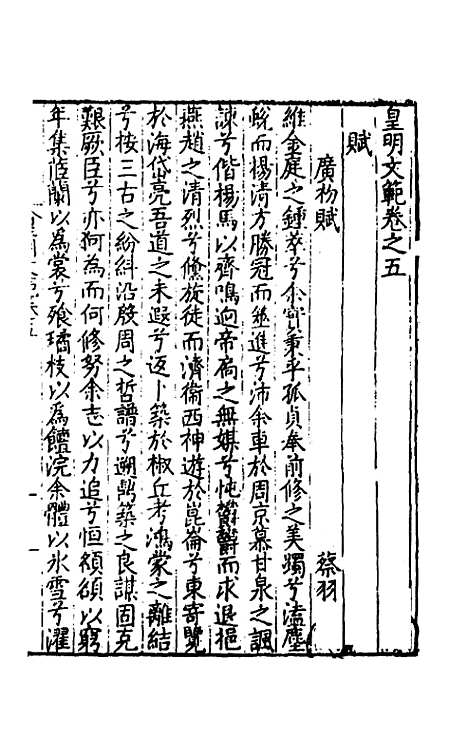 皇明文範卷之五
賦
廣初賦 蔡羽
維金庭之鍾萃兮余實秉乎孤貞奉前修之美躅兮溘塵
蛻而楊清方勝冠而並進兮沛余車於周京慕甘泉之諷
諫兮偕楊馬以齊鳴迫帝閽之無媒兮忳鬱鬱而求退挹
燕趙之清烈兮儵旋徒而濟衛西神遊於崑崙兮東寄覽
於海岱亮吾道之未遐兮返卜築於椒丘考鴻蒙之離結
兮按三古之紛糾沿殷周之哲譜兮遡鼎築之良謀固克
艱厥臣兮亦何為而何修努余志以力追兮恒頷頷以窮
年集茝蘭以為裳兮飱璚枝以為饐浣余體以氷雪兮濯